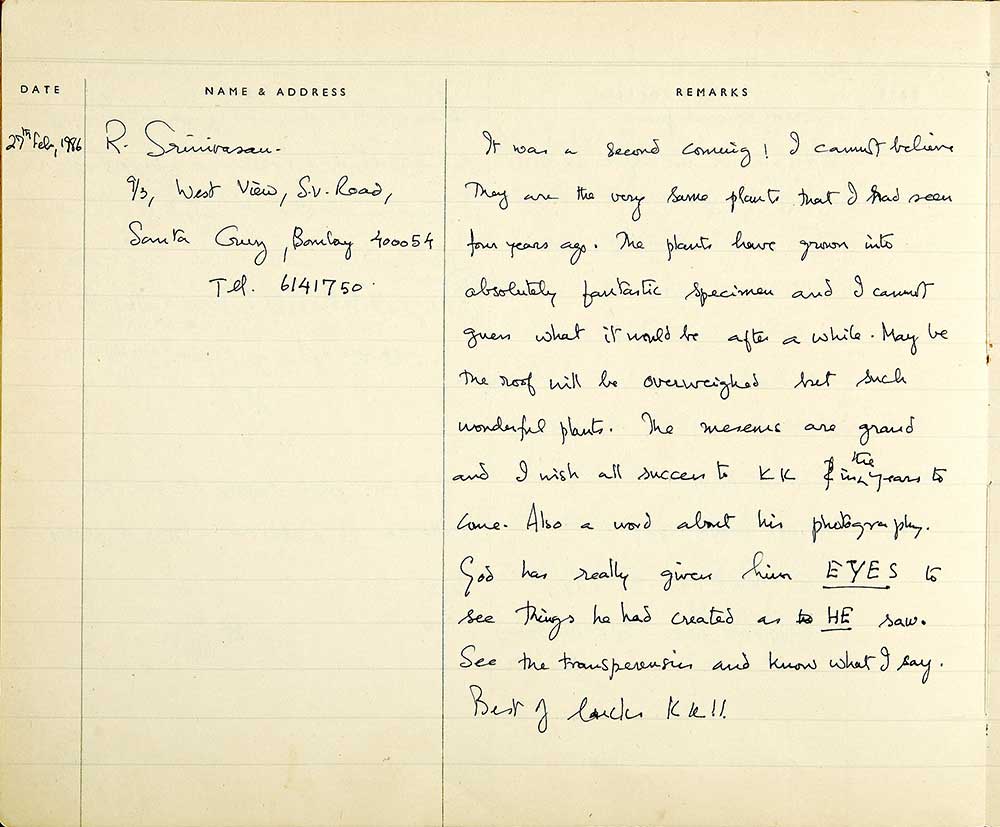 DATE
NAME & ADDRESS
REMARKS
27th Feb, 1986
R. Srinivasan.
9/3, West View, S.V. Road,
Santa Cruz, Bombay 400054
Tel. 6141750.
It was a second coming! I cannot believe
They are the very same plants that I had seen
four years ago. The plants have grown into
absolutely fantastic specimen and I cannot
guess what it would be after a while. May be
the roof will be overweighed but such
wonderful plants. The mesems are grand
and I wish all success to KK in the years to
come. Also a word about his photography.
God has really given him EYES to
see things he had created as HE saw.
See the transperensies and know what I say.
Best of lucks KK!!